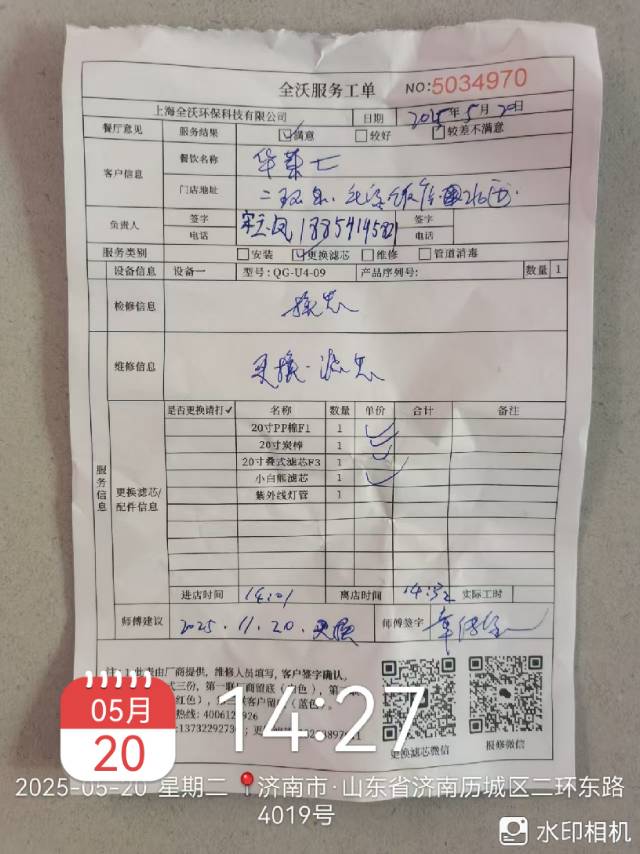 全沃服务工单 NO:5034970
上海全沃环保科技有限公司 日期 2025年5月20日
餐厅意见 服务结果 满意 较好 较差不满意
客户信息 餐饮名称 华莱士
门店地址 二环东
负责人 签字 签字
电话 电话
服务类别 安装 更换滤芯 维修 管道消毒
设备信息 设备一 型号:QG-U4-09 产品序列号: 数量 1
检修信息 换芯
维修信息 更换滤芯
服务信息
更换滤芯/配件信息
是否更换请打✓ 名称 数量 单价 合计 备注
20寸PP棉F1 1 ✓
20寸炭棒 1 ✓
20寸叠式滤芯F3 1 ✓
小白熊滤芯 1 ✓
紫外线灯管 1
进店时间 14:01 离店时间 实际工时
师傅建议 2025.11.20.更换 师傅签字
厂商提供, 维修人员填写, 客户签字确认。
更换滤芯微信 报修微信
05月
20
14:27
2025-05-20 星期二 济南市·山东省济南历城区二环东路
4019号
水印相机